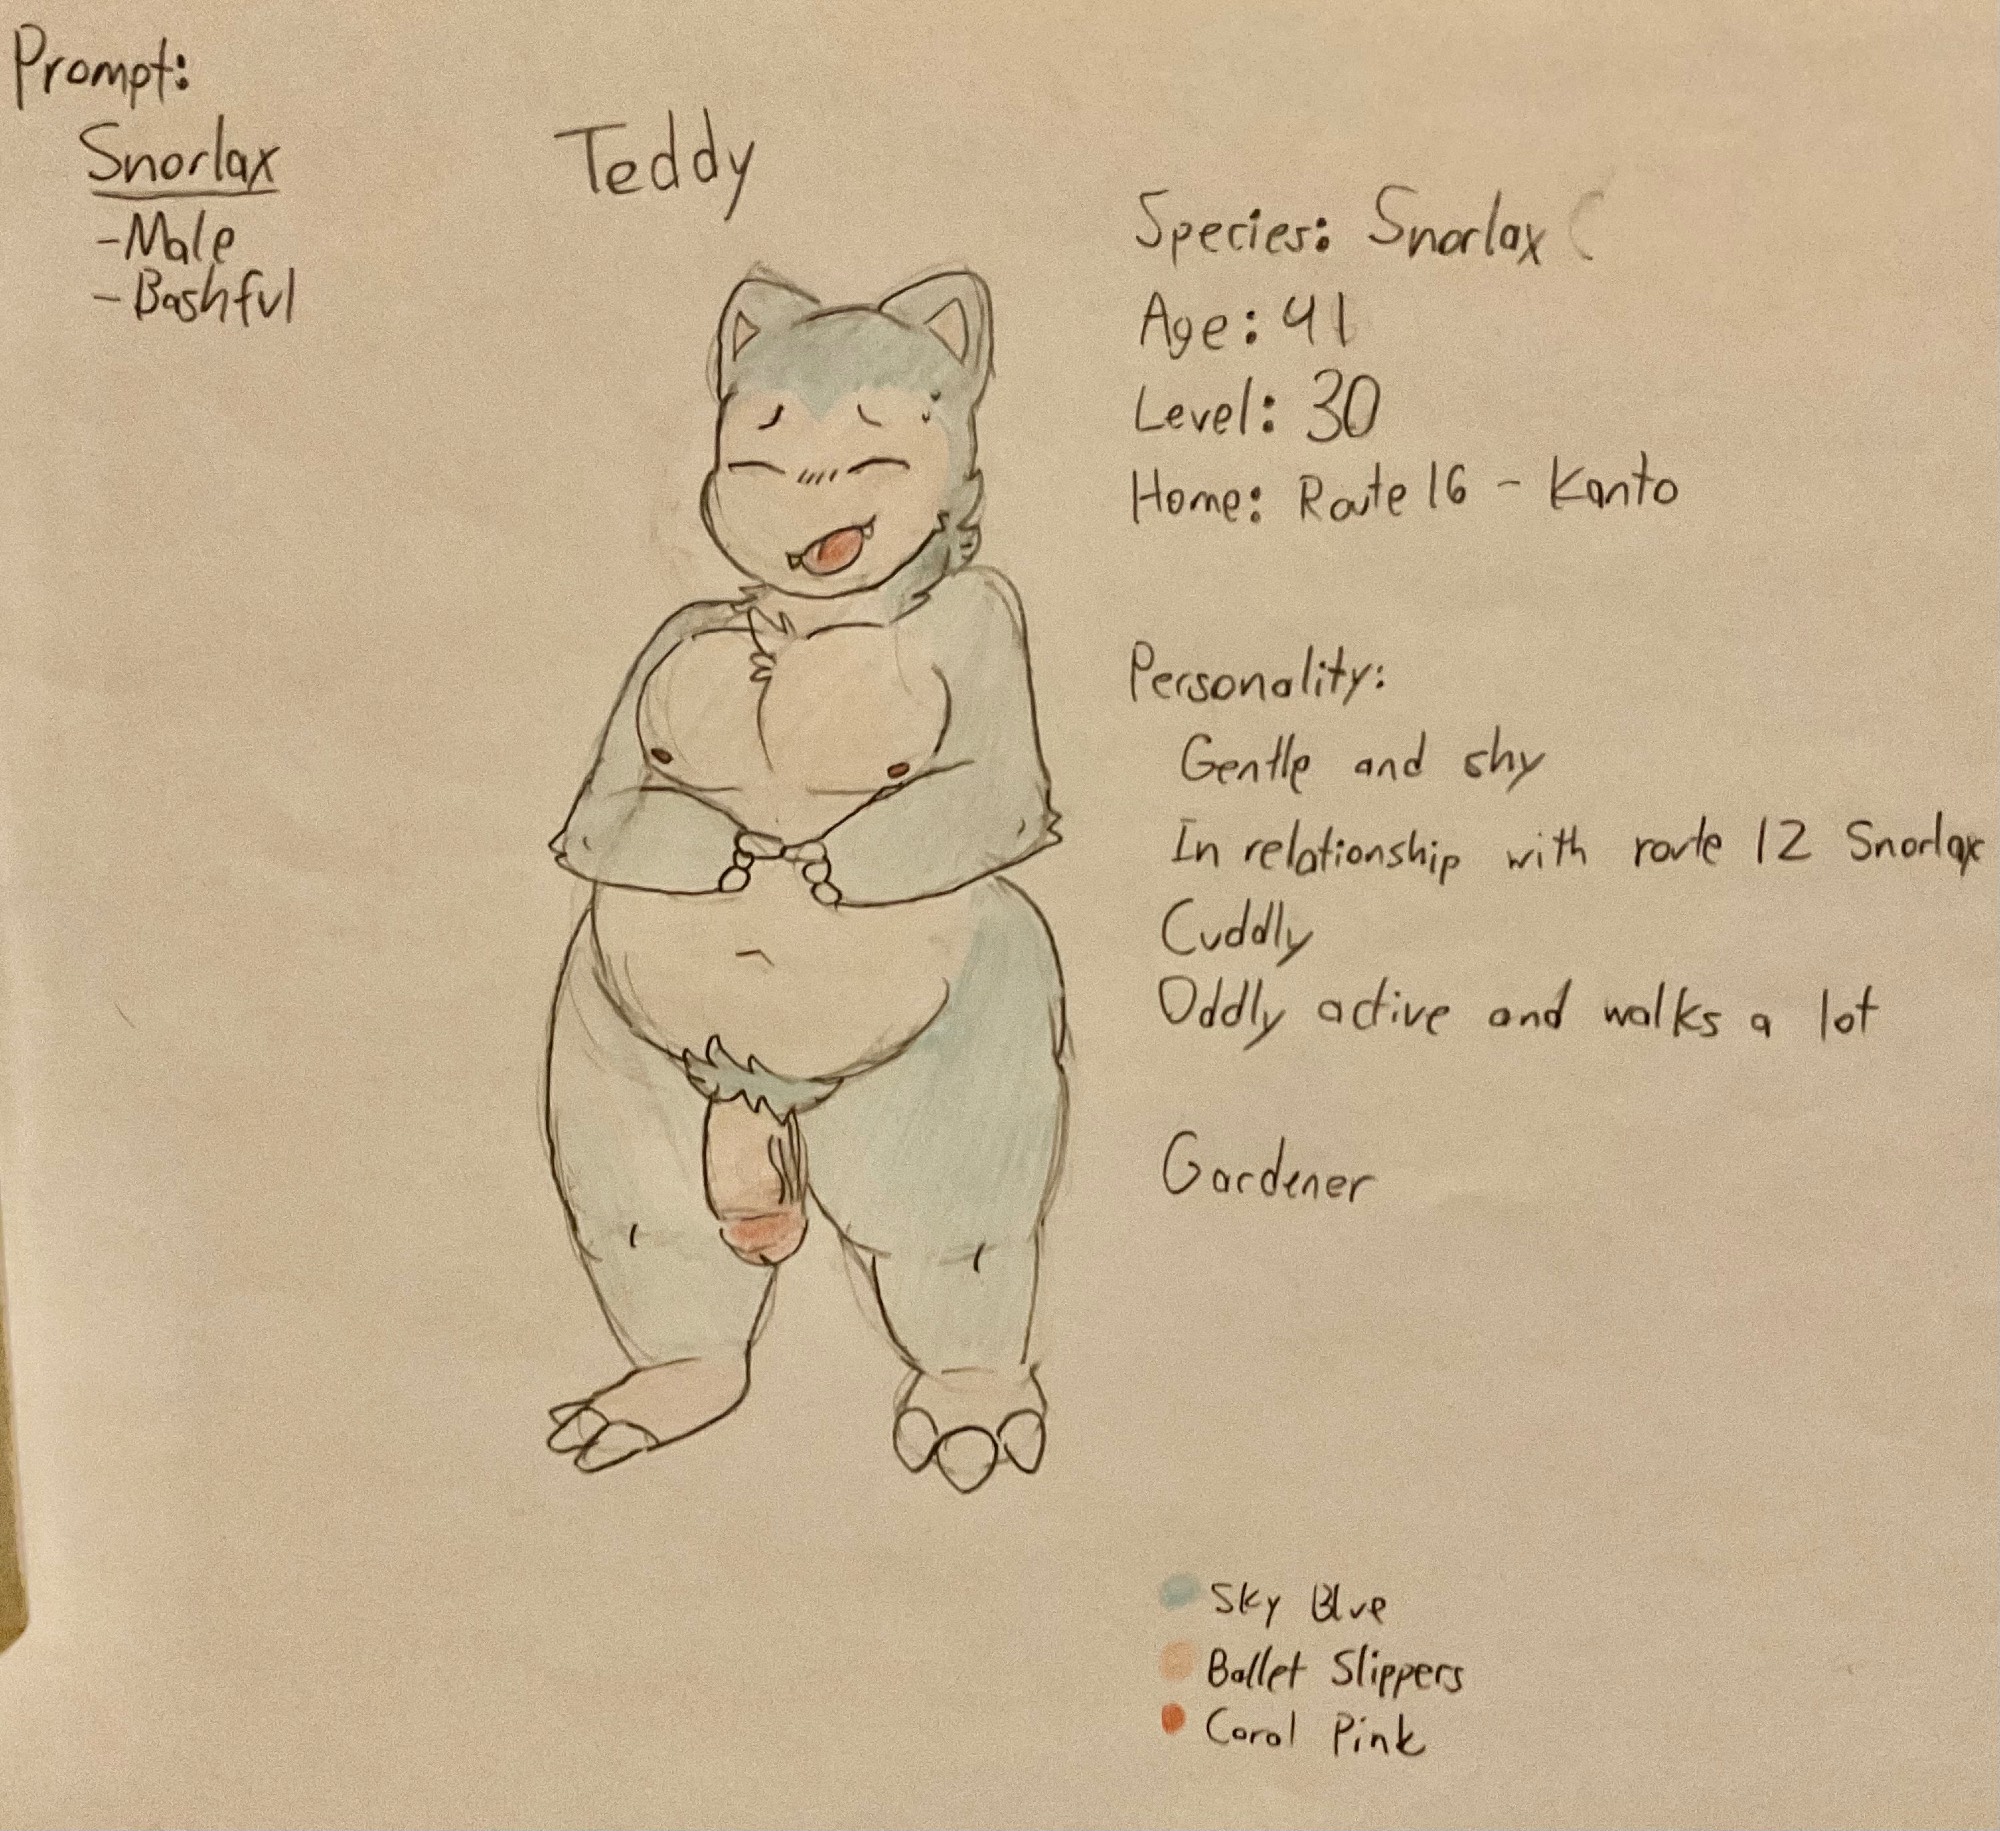 Prompt:
Snorlax
-Male
-Bashful
Teddy
Species: Snorlax (
Age: 41
Level: 30
Home: Route 16 - Kanto
Personality:
Gentle and shy
In relationship with route 12 Snorlax
Cuddly
Oddly active and walks a lot
Gardener
Sky Blue
Ballet Slippers
Coral Pink